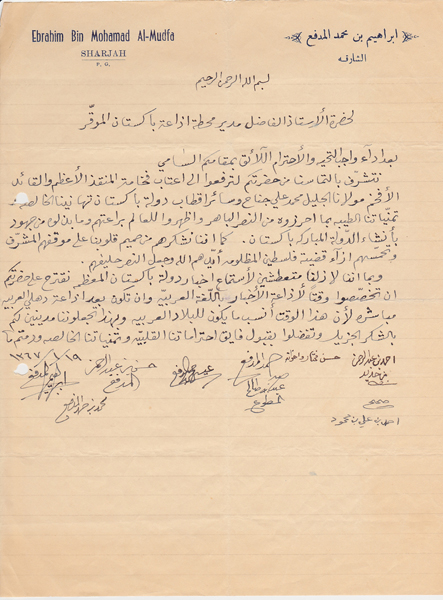 Ebrahim Bin Mohamad Al-Mudfa
SHARJAH
P. G.
ابراهيم بن محمد المدفع
الشارقه
بسم الله الرحمن الرحيم
لحضرة الأستاذ الفاضل مدير محطة اذاعة باكستان الموقّر
بعد اداء واجب التحية والاحترام اللائق بمقامكم السامي
نتشرف بالتماسنا من حضرتكم لترفعوا الى اعتاب فخامة المنقذ الأعظم والقائد
الأفخم مولانا الجليل محمد علي جناح وسائر اقطاب دولة باكستان تهانينا الخالصه
تمنياتنا الطيبه بما احرزوه من النصر الباهر واظهروا للعالم براعتهم وما بذلوه من جهود
بأنشاء الدولة المباركه باكستان. كما اننا نشكرهم من صميم قلوبنا على موقفهم المشرف
وتحمسهم ازآء قضية فلسطين المظلومه أيدهم الله وجعل النصر حليفهم
وبما اننا لازلنا متعطشين لأستماع اخبار دولة باكستان المعظم نقترح على حضرتكم
ان تخصّصوا وقتًا لأذاعة الأخبار باللغة العربية وان تكون بعد اذاعة دهلي العربية
مباشره لأن هذا الوقت أنسب ما يكون للبلاد العربيه ولهذا تجعلوننا مدينين لكم
بالشكر الجزيل وتفضلوا بقبول فايق احتراماتنا القلبيّة وتمنياتنا الخالصه ودمتم
١٣٦٧/١/١٩
احمد بن عبد الرحمن
حميد المدفع
حسن بن عبد الرحمن
المدفع
ابراهيم المدفع
المطوع
محمد بن
احمد بن علي بن محمود